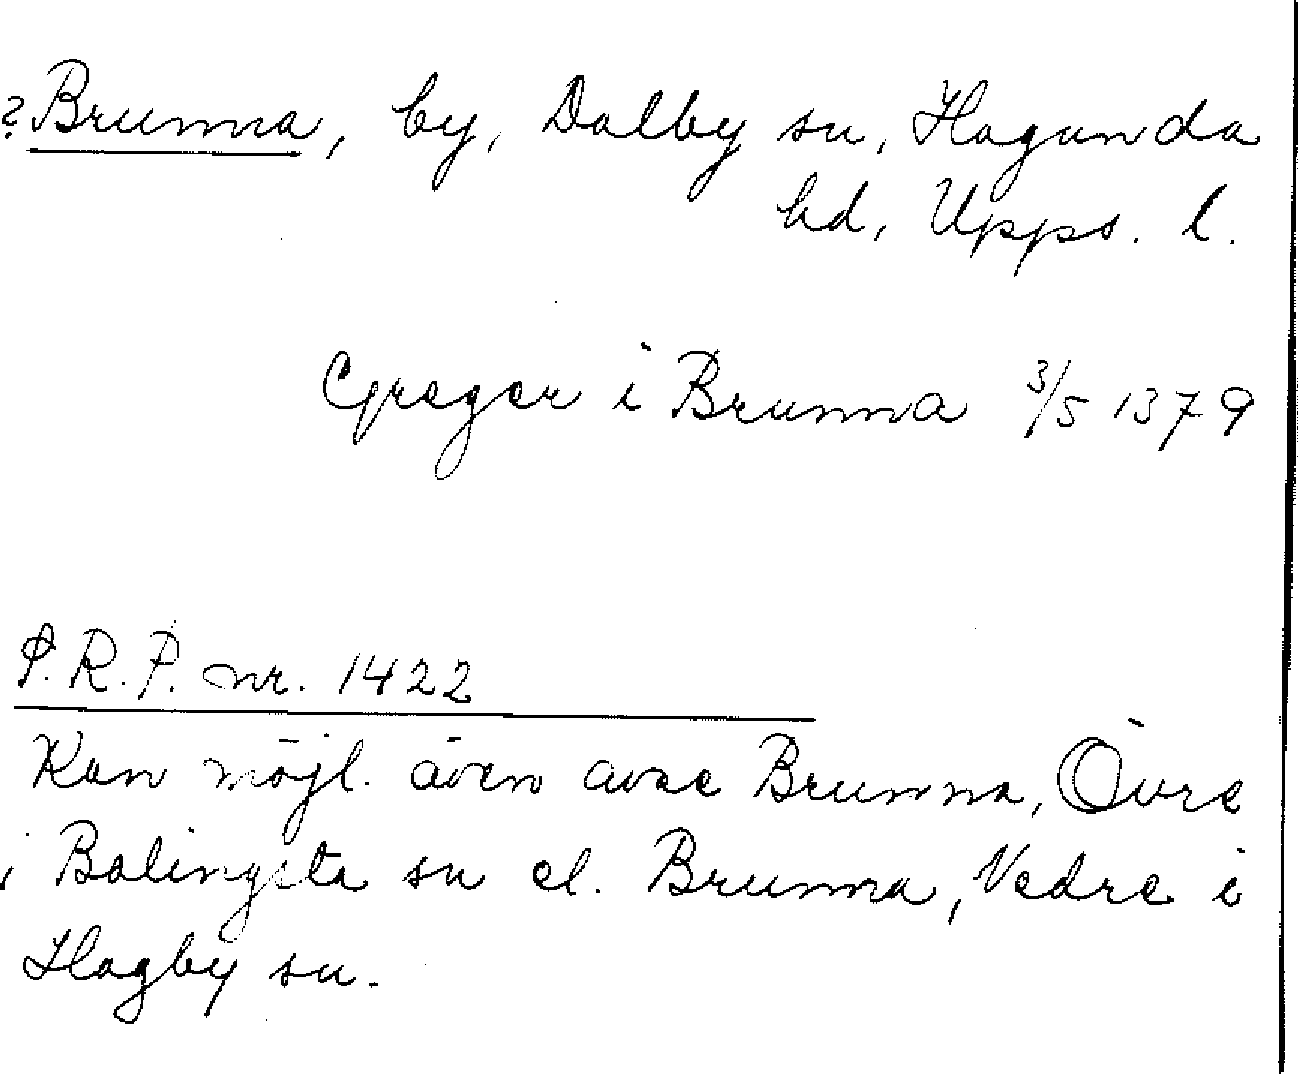 ? Brunna, by, Dalby sn, Hagunda
hd, Upps. l.
Greger i Brunna 3/5 1379
S.R.P. nr. 1422
Kan möjl. även avse Brunna, Övre
i Balingsta sn el. Brunna, Nedre i
Hagby sn.